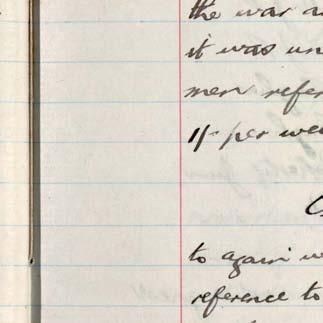 the war a
it was un
men refer
1/- per wee
to again w
reference to